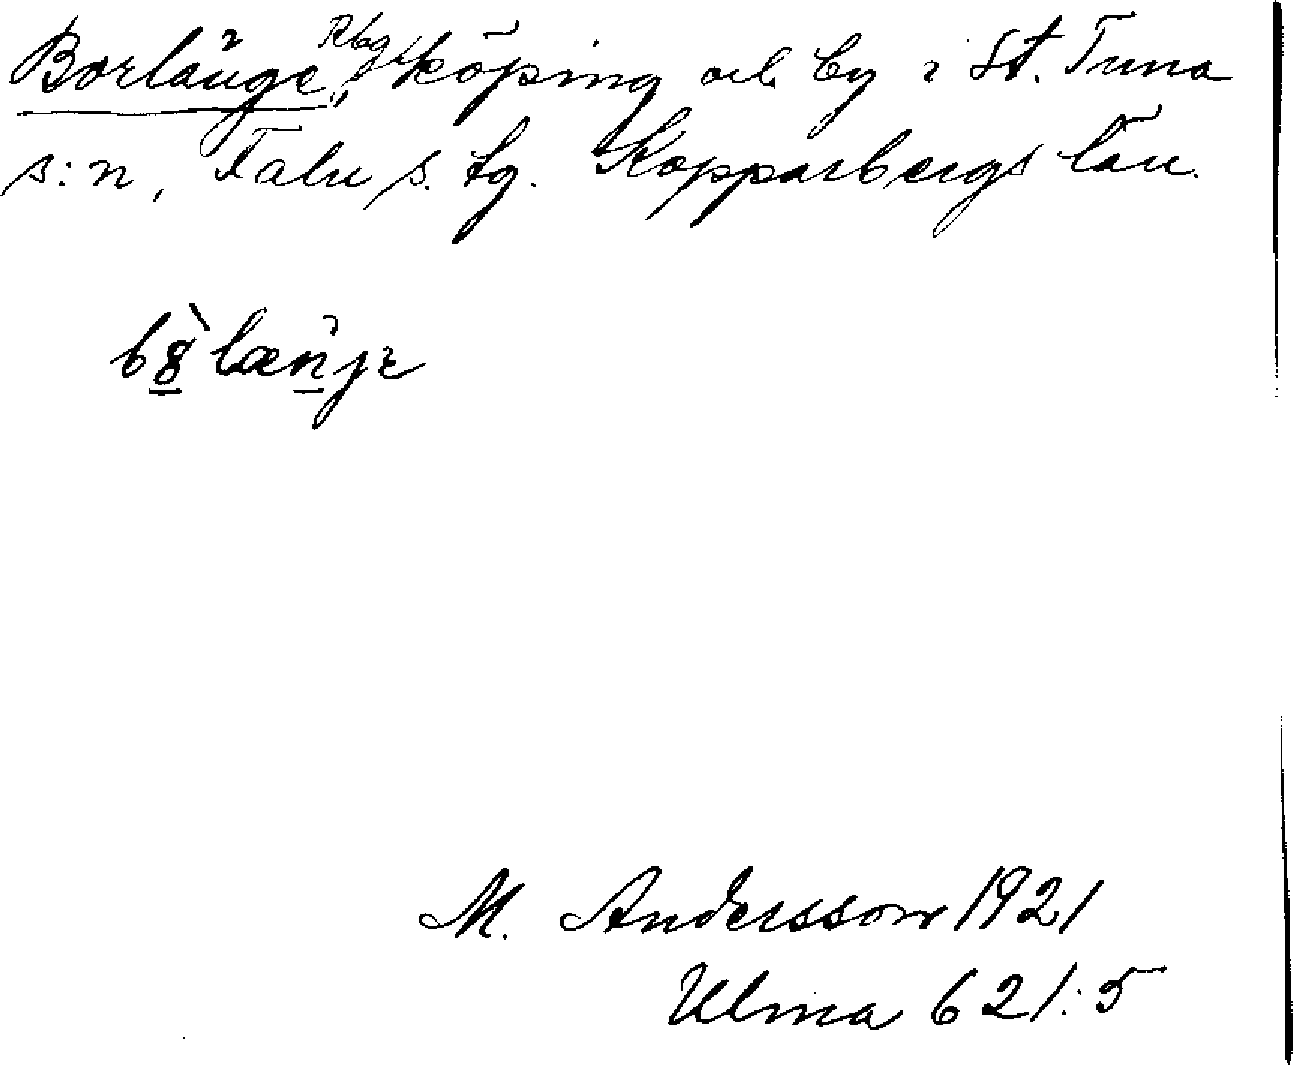 Borlänge, Rbg, köping och by i St. Tuna
s:n, Falu s. tg. Kopparbergs län.
b8̀lænje
M. Andersson 1921
Ulma 621:5